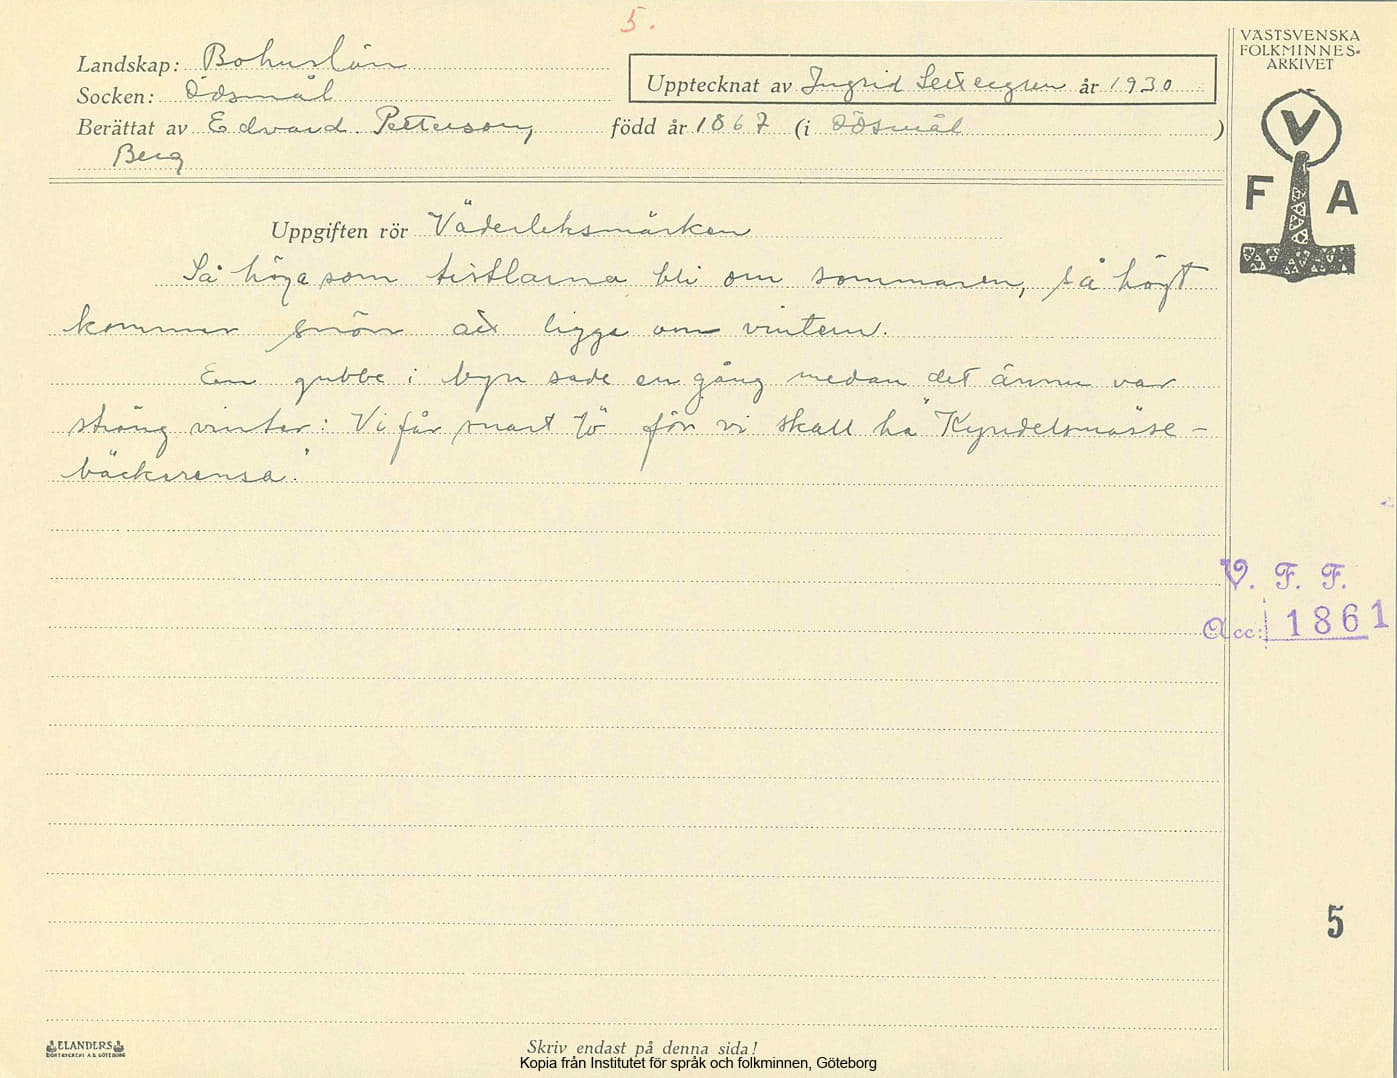 5.
VÄSTSVENSKA
FOLKMINNES-
ARKIVET
Landskap: Bohuslän
Socken: Ödsmål
Upptecknat av Ingrid år 1930
Berättat av Edvard Petterson, född år 1867 (i Ödsmål )
Berg
V
F A
Uppgiften rör Väderleksmärken
Så höga som tistlarna bli om sommaren, så högt
kommer snön att ligga om vintern.
En gubbe i byn sade en gång medan det ännu var
sträng vinter: Vi får snart tö för vi skall ha "Kyndelsmässe-
bäckarensa".
V. F. F.
Acc: 1861
5
ELANDERS
BOKTRYCKERI A.B. GÖTEBORG
Skriv endast på denna sida!
Kopia från Institutet för språk och folkminnen, Göteborg